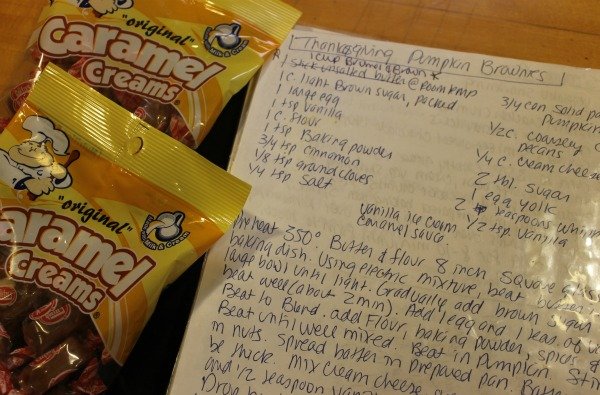 "original"
Caramel
Creams
"original"
Caramel
Creams
Thanksgiving Pumpkin Brownies
1 cup Browned
stick unsalted butter @ Room temp
1 c. light Brown sugar, packed
1 large egg
1 tsp Vanilla
1 c. flour
1 tsp Baking powder
3/4 tsp cinnamon
1/8 tsp ground cloves
1/4 tsp salt
3/4 can solid
pumpkin
1/2 c. coarsely
pecans
1/4 c. cream cheese
2 tbl. sugar
1 egg yolk
2 teaspoons whipp
1/2 tsp. Vanilla
Vanilla ice cream
caramel sauce
Preheat 350° Butter & flour 8 inch square
baking dish. Using electric mixture, beat butter
large bowl until light. Gradually add brown sugar
beat well (about 2 min). Add 1 egg and 1 teas. of
Beat to Blend. add Flour, baking powder, spices &
Beat until well mixed. Beat in Pumpkin. Stir
in nuts. Spread batter in prepared pan.
be thick. Mix cream cheese,
and 1/2 teaspoon
Drop